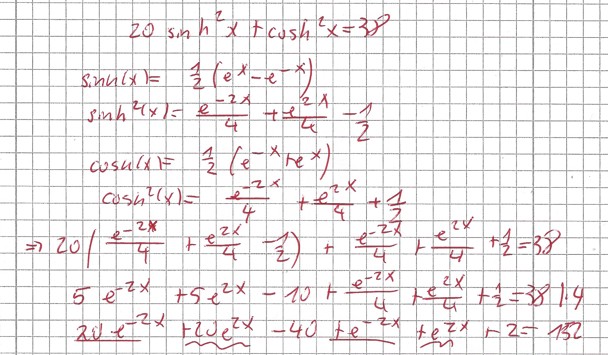 20 sinh²x + cosh²x = 38
sinh(x) = 1/2 (e^x - e^-x)
sinh²(x) = e^-2x/4 + e^2x/4 - 1/2
cosh(x) = 1/2 (e^-x + e^x)
cosh²(x) = e^-2x/4 + e^2x/4 + 1/2
⇒ 20( e^-2x/4 + e^2x/4 - 1/2 ) + e^-2x/4 + e^2x/4 + 1/2 = 38
5 e^-2x + 5e^2x - 10 + e^-2x/4 + e^2x/4 + 1/2 = 38 |·4
20 e^-2x + 20e^2x - 40 + e^-2x + e^2x + 2 = 152